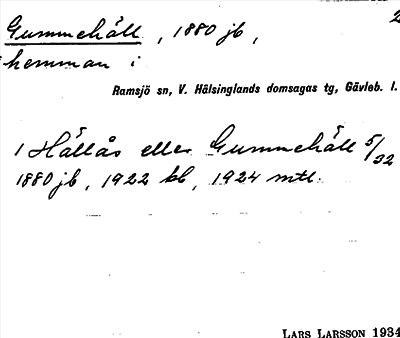 Gummehäll, 1880 jb, 2
hemman i
Ramsjö sn, V. Hälsinglands domsagas tg, Gävleb. l.
1 Hällås eller Gummehäll 5/32
1880 jb, 1922 kb, 1924 mtl.
LARS LARSSON 1934